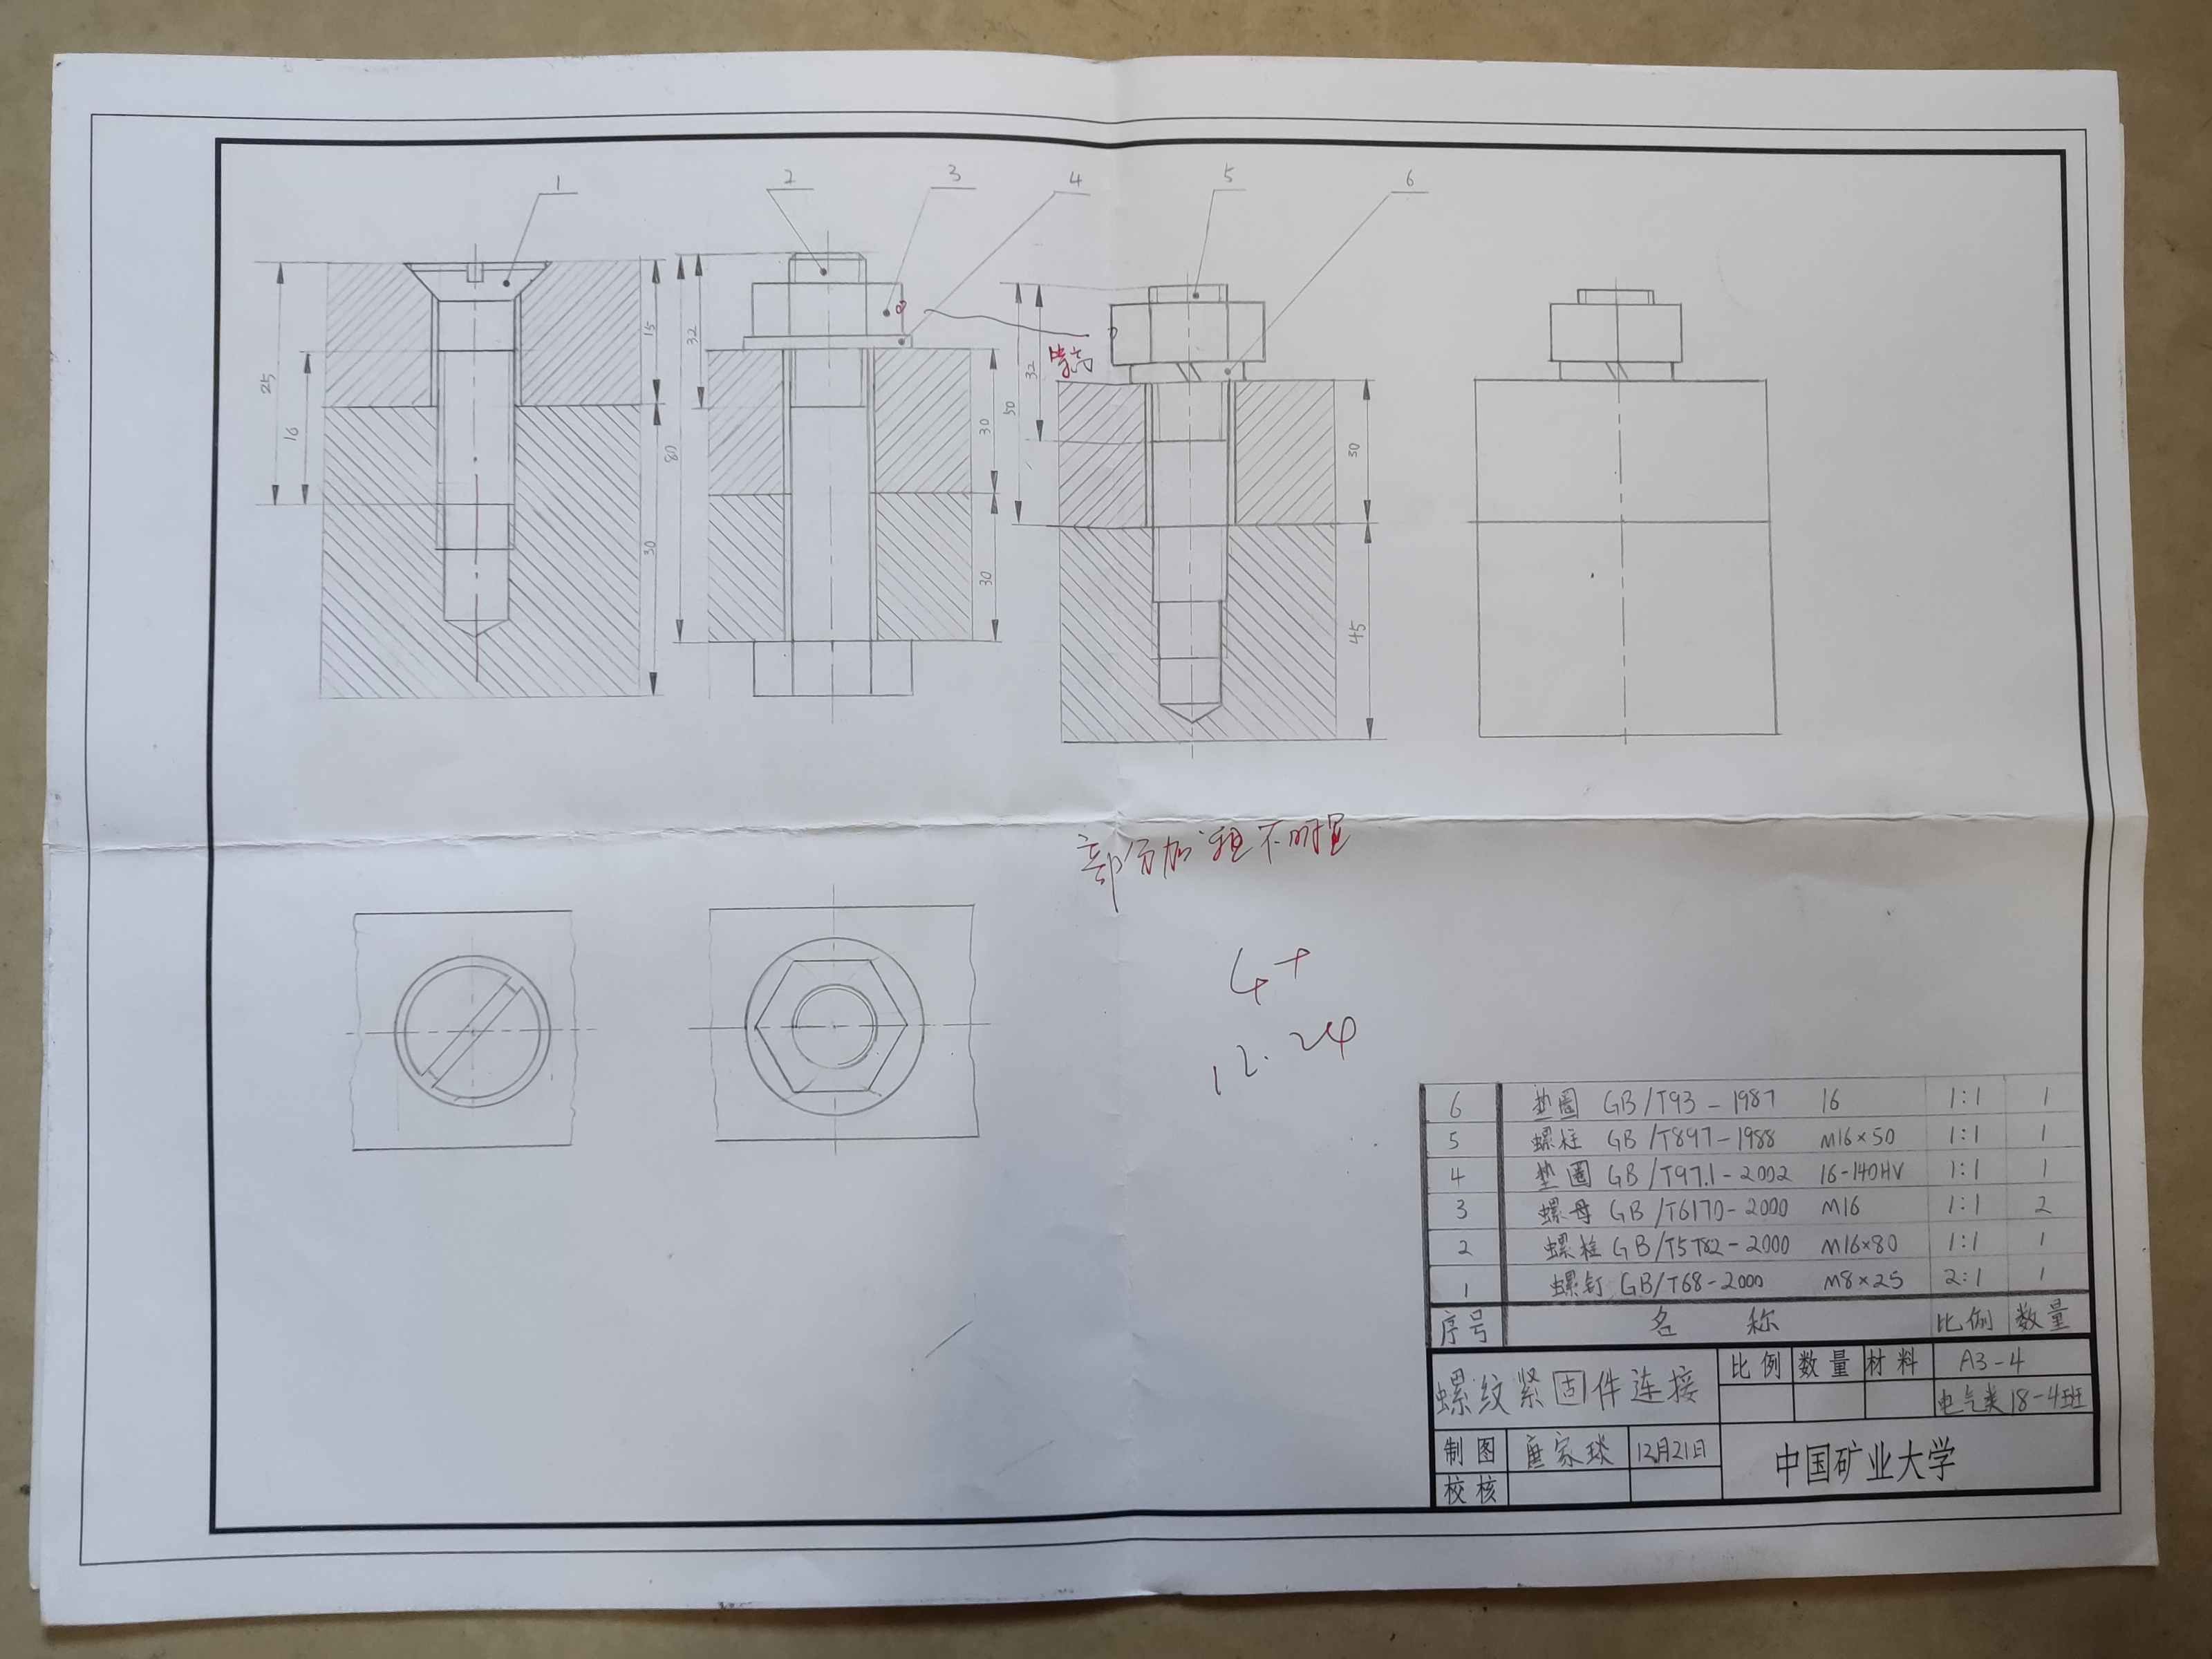 1
2
3
4
5
6
25
16
15
30
32
80
30
30
32
50
30
45
部分加粗不明显
4+
12.24
6 垫圈 GB/T93-1987 16 1:1 1
5 螺柱 GB/T897-1988 M16×50 1:1 1
4 垫圈 GB/T97.1-2002 16-140HV 1:1 1
3 螺母 GB/T6170-2000 M16 1:1 2
2 螺栓 GB/T5782-2000 M16×80 1:1 1
1 螺钉 GB/T68-2000 M8×25 2:1 1
序号 名 称 比例 数量
螺纹紧固件连接 比例 数量 材料 A3-4
电气类18-4班
制图 12月21日 中国矿业大学
校核